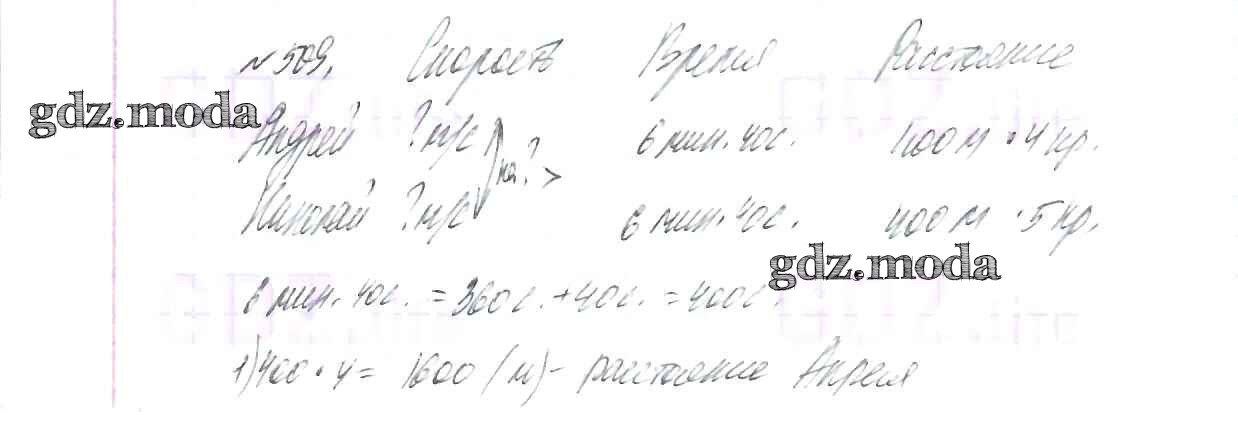 №509. Скорость Время Расстояние
gdz.moda
Андрей ? м/с 6 мин. 40с. 400м · 4 кр.
на ? >
Николай ? м/с 6 мин. 40с. 400м · 5 кр.
gdz.moda
6 мин. 40с. = 360с. + 40с. = 400с.
1) 400 · 4 = 1600 (м) - расстояние Андрея